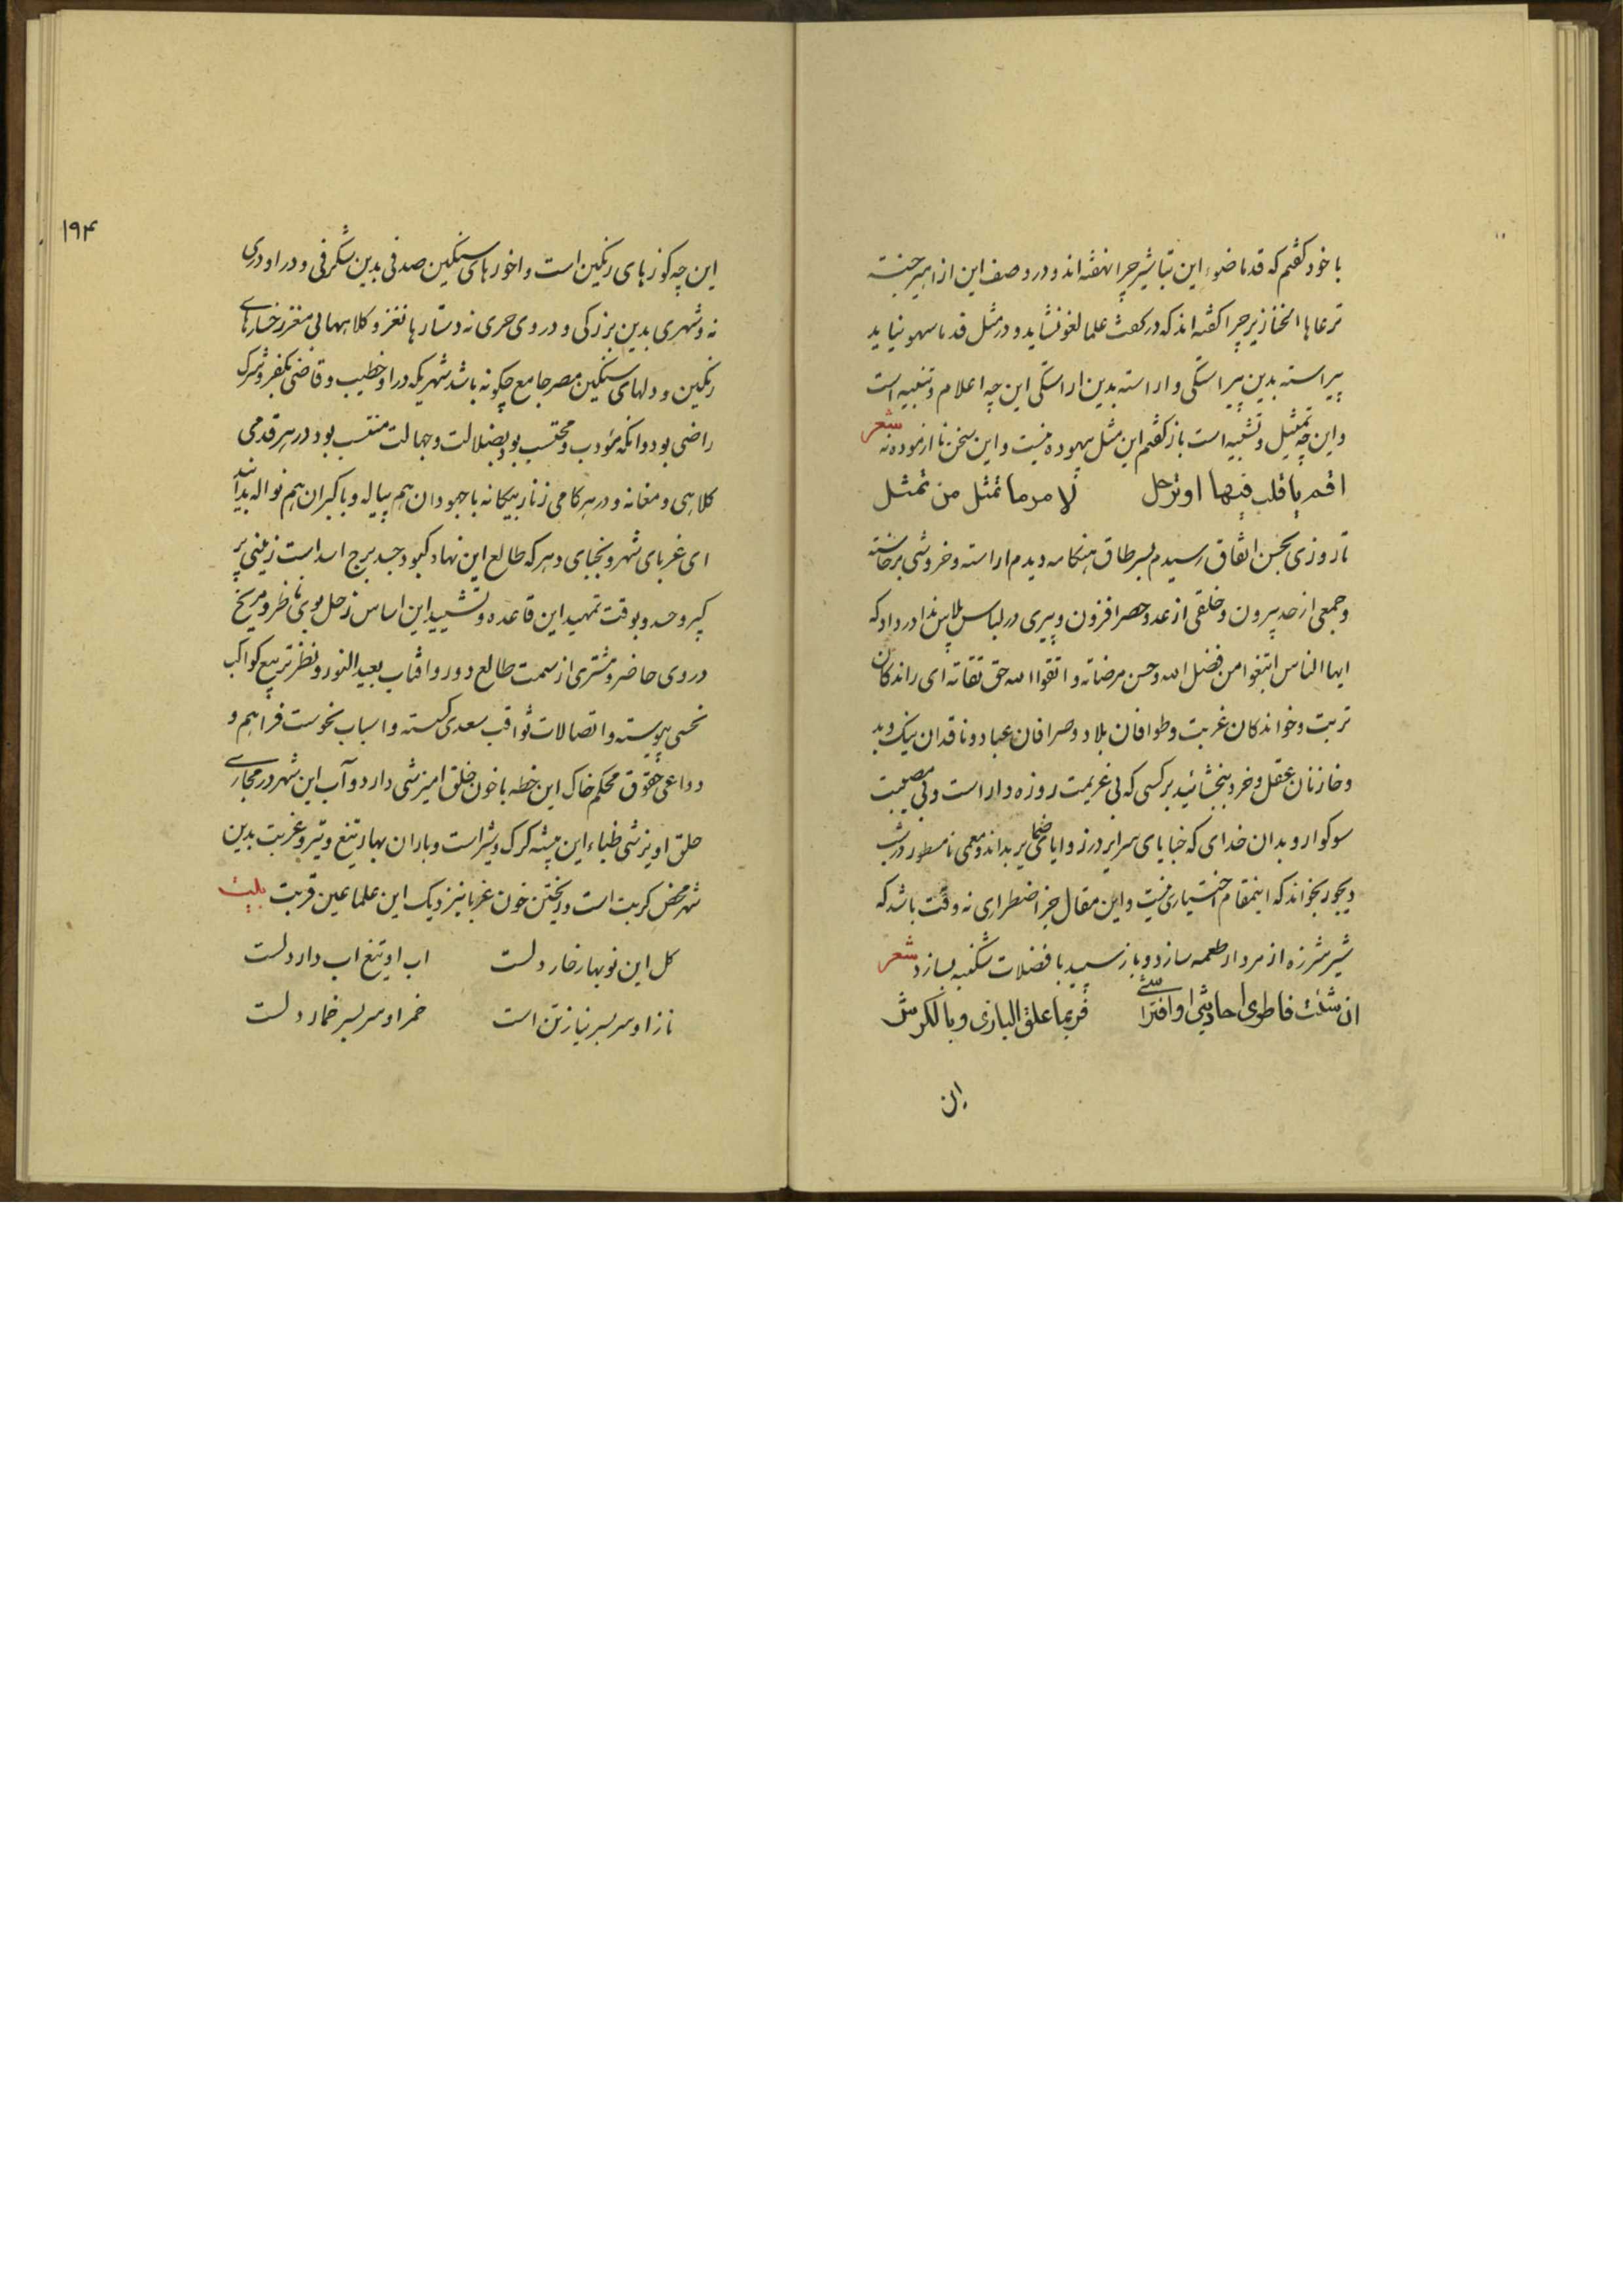 با خود گفتم که قدما ضوء این تباشیر چرا نهفته‌اند و در وصف این ازاهیر جنته
ترعاها الخنازیر چرا گفته‌اند که در گفت علما لغو نشاید و در مثل قدما سهو نیاید
پیراسته بدین پیراستگی و اراسته بدین اراستگی این چه اعلام و تنبیه است
و این چه تمثیل و تشبیه است باز گفتم این مثل بیهوده نیست و این سخن نا ازموده نه شعر
اقم یا قلب فیها او ترحل لامر ما تمثل من تمثل
تا روزی بحسن اتفاق رسیدم بسر طاق هنگامه دیدم اراسته و خروشی برخاسته
و جمعی از حد بیرون و خلقی از عد و حصر افزون و پیری در لباس پلاس ندا در داد که
ایها الناس ابتغوا من فضل الله و حسن مرضاته و اتقوا الله حق تقاته ای راندگان
تربت و خواندگان غربت و طوافان بلاد و صرافان عباد و ناقدان نیک و بد
و خازنان عقل و خرد ببخشائید بر کسی که بی عزیمت روزه دار است و بی مصیبت
سوکوار و بدان خدای که خبایای سرایر در زوایای ضمایر بداند و معمی نامسطور در شب
دیجور بخواند که اینمقام اختیاری نیست و این مقال جز اضطراری نه وقت باشد که
شیر شرزه از مردار طعمه سازد و باز سپید با فضلات شکنبه بسازد شعر
ان شئت فاطوی احادیثی او افتراشی فربما علق البازی و بالکرش
ان
۱۹۴
این چه کوزهای رنگین است و اخورهای سنگین صدفی بدین شگرفی و در او دری
نه و شهری بدین بزرگی و در وی حری نه دستارها نغز و کلاههای بی مغز رخسارهای
رنگین و دلهای سنگین مصر جامع چگونه باشد شهریکه در او خطیب و قاضی بکفر و شرک
راضی بود و انکه مؤدب و محتسب بود بضلالت و جهالت منتسب بود در هر قدمی
کلاهی و مغانه و در هر کامی زنار بیگانه با جهودان هم پیاله و با گبران هم نواله بدانید
ای غربای شهر و نجبای دهر که طالع این نهاد کبود جسد برج اسد است زمینی پر
کبر و حسد و بوقت تمهید این قاعده و تشیید این اساس زحل بوی ناظر و مریخ
در وی حاضر و مشتری از سمت طالع دور و افتاب بعید النور و نظر تربیع کواکب
نحسی پیوسته و اتصالات ثواقب سعدی گسسته و اسباب نحوست فراهم و
دواعی حقوق محکم خاک این خطه با خون خلق امیزشی دارد و آب این شهر در مجاری
حلق اویزشی ظباء این بیشه گرگ و شیر است و باران بهار تیغ و تیر و غربت بدین
شهر محض کربت است و ریختن خون غربا نزدیک این علما عین قربت بیت
گل این نوبهار خار دلست اب او تیغ اب دار دلست
ناز او سر بسر نیاز تن است خمر او سر بسر خمار دلست